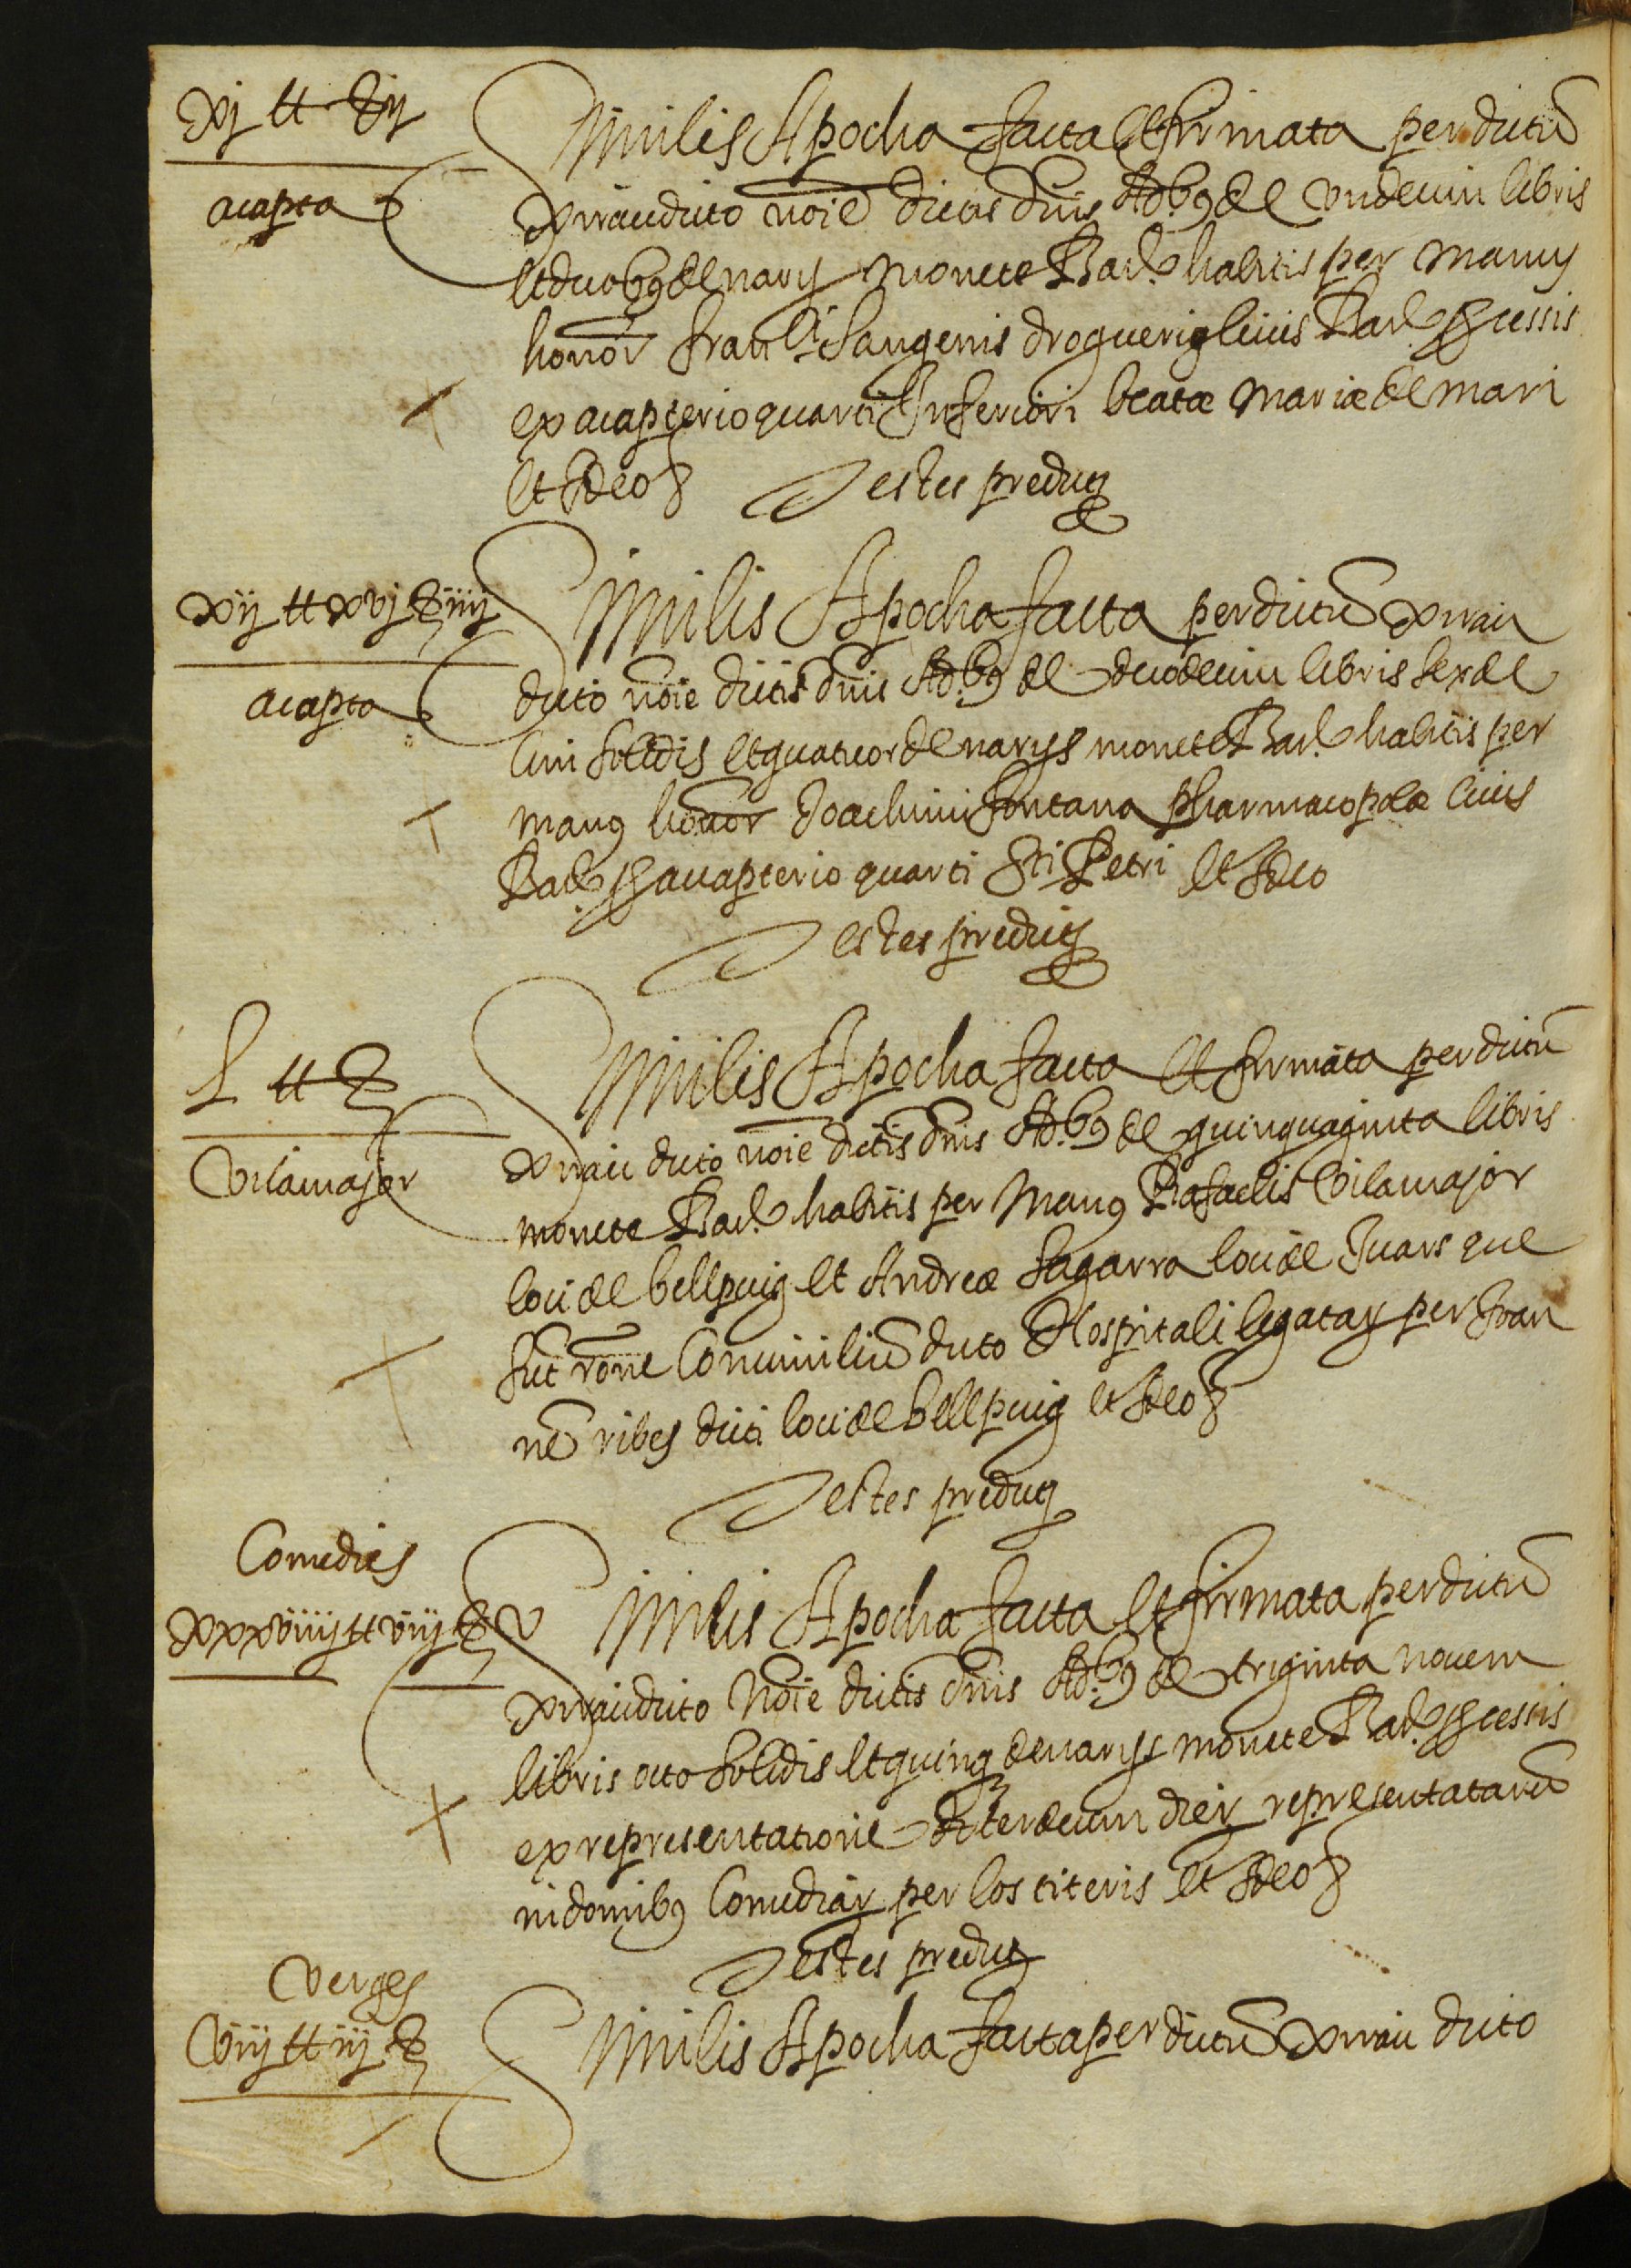 xj tt ɮ ij
acapta
Similis Apocha facta et firmata per dictū
Xirau dicto noīe dictis dn̄is Ad.bꝯ de vndecim libris
et duobꝯ denarijs monete Bar.ᵉ habitis per manus
honor Fran.ci Sangenis droguerij ciuis Bar.ᵉ ꝓcessis
ex acapterio quarti Inferiori beatæ Mariæ de mari
et Ideo &
Testes predicti
xij tt xvj ɮ iiij
acapta
Similis Apocha facta per dictū Xirau
dicto noīe dictis dn̄is Ad.bꝯ de duodecim libris sexde
cim solidis et quatuor denarijs monete Bar.ᵉ habitis per
manꝯ honor Joachimi Fontana pharmacopolæ ciuis
Bar.ᵉ ꝓ acapterio quarti Sti Petri et Ideo
Testes predicti
L tt ɮ
Vilamajor
Similis Apocha facta et firmata per dictū
Xirau dicto noīe dictis dn̄is Ad.bꝯ de quinquaginta libris
monete Bar.ᵉ habitis per manꝯ Rafaelis Vilamajor
loci de bellpuig et Andreæ Sagarra loci de Iuars que
sūt rōne Convivíliū dicto Hospitali legatarꝫ per Joan
nē ribes dicti loci de bellpuig et Ideo &
Testes predicti
Comedies
xxxviiij tt viij ɮ v
Similis Apocha facta et firmata per dictū
Xirau dicto noīe dictis dn̄is Ad.bꝯ de triginta novem
libris octo solidis et quinqꝫ denarijs monete Bar.ᵉ ꝓcessis
ex representatione terdecim dierꝫ representatarū
in domibꝯ Comediarꝫ per los titeris et Ideo &
Testes predicti
Verges
viij tt iij ɮ
Similis Apocha facta per dictū Xirau dicto